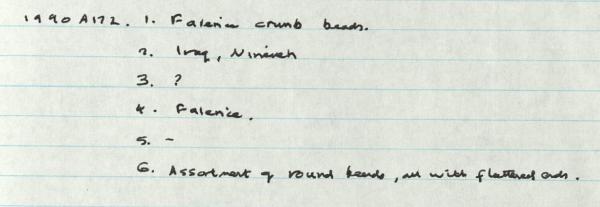 1990 A172. 1. Faience crumb beads.
2. Iraq, Nineveh
3. ?
4. Faience.
5. -
6. Assortment of round beads, all with flattened ends.